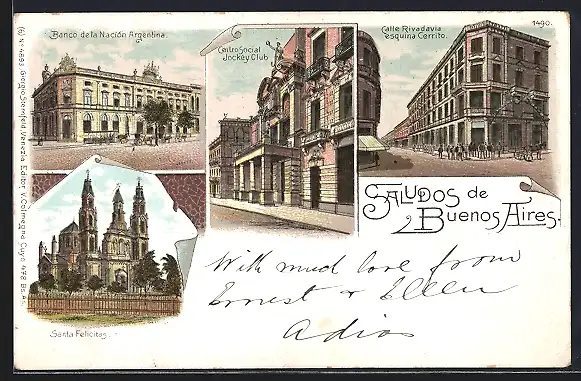 Banco de la Nación Argentina.
Centro Social
Jockey Club
Calle Rivadavia
esquina Cerrito.
1490.
(6) No 4893. Giorgio Steinfeld, Venezia Editor V. Colmegna Cuyo 478 Bs. As.
SALUDOS de
Buenos Aires.
Santa Felicitas.
With much love from
Ernest & Ellen
Adios